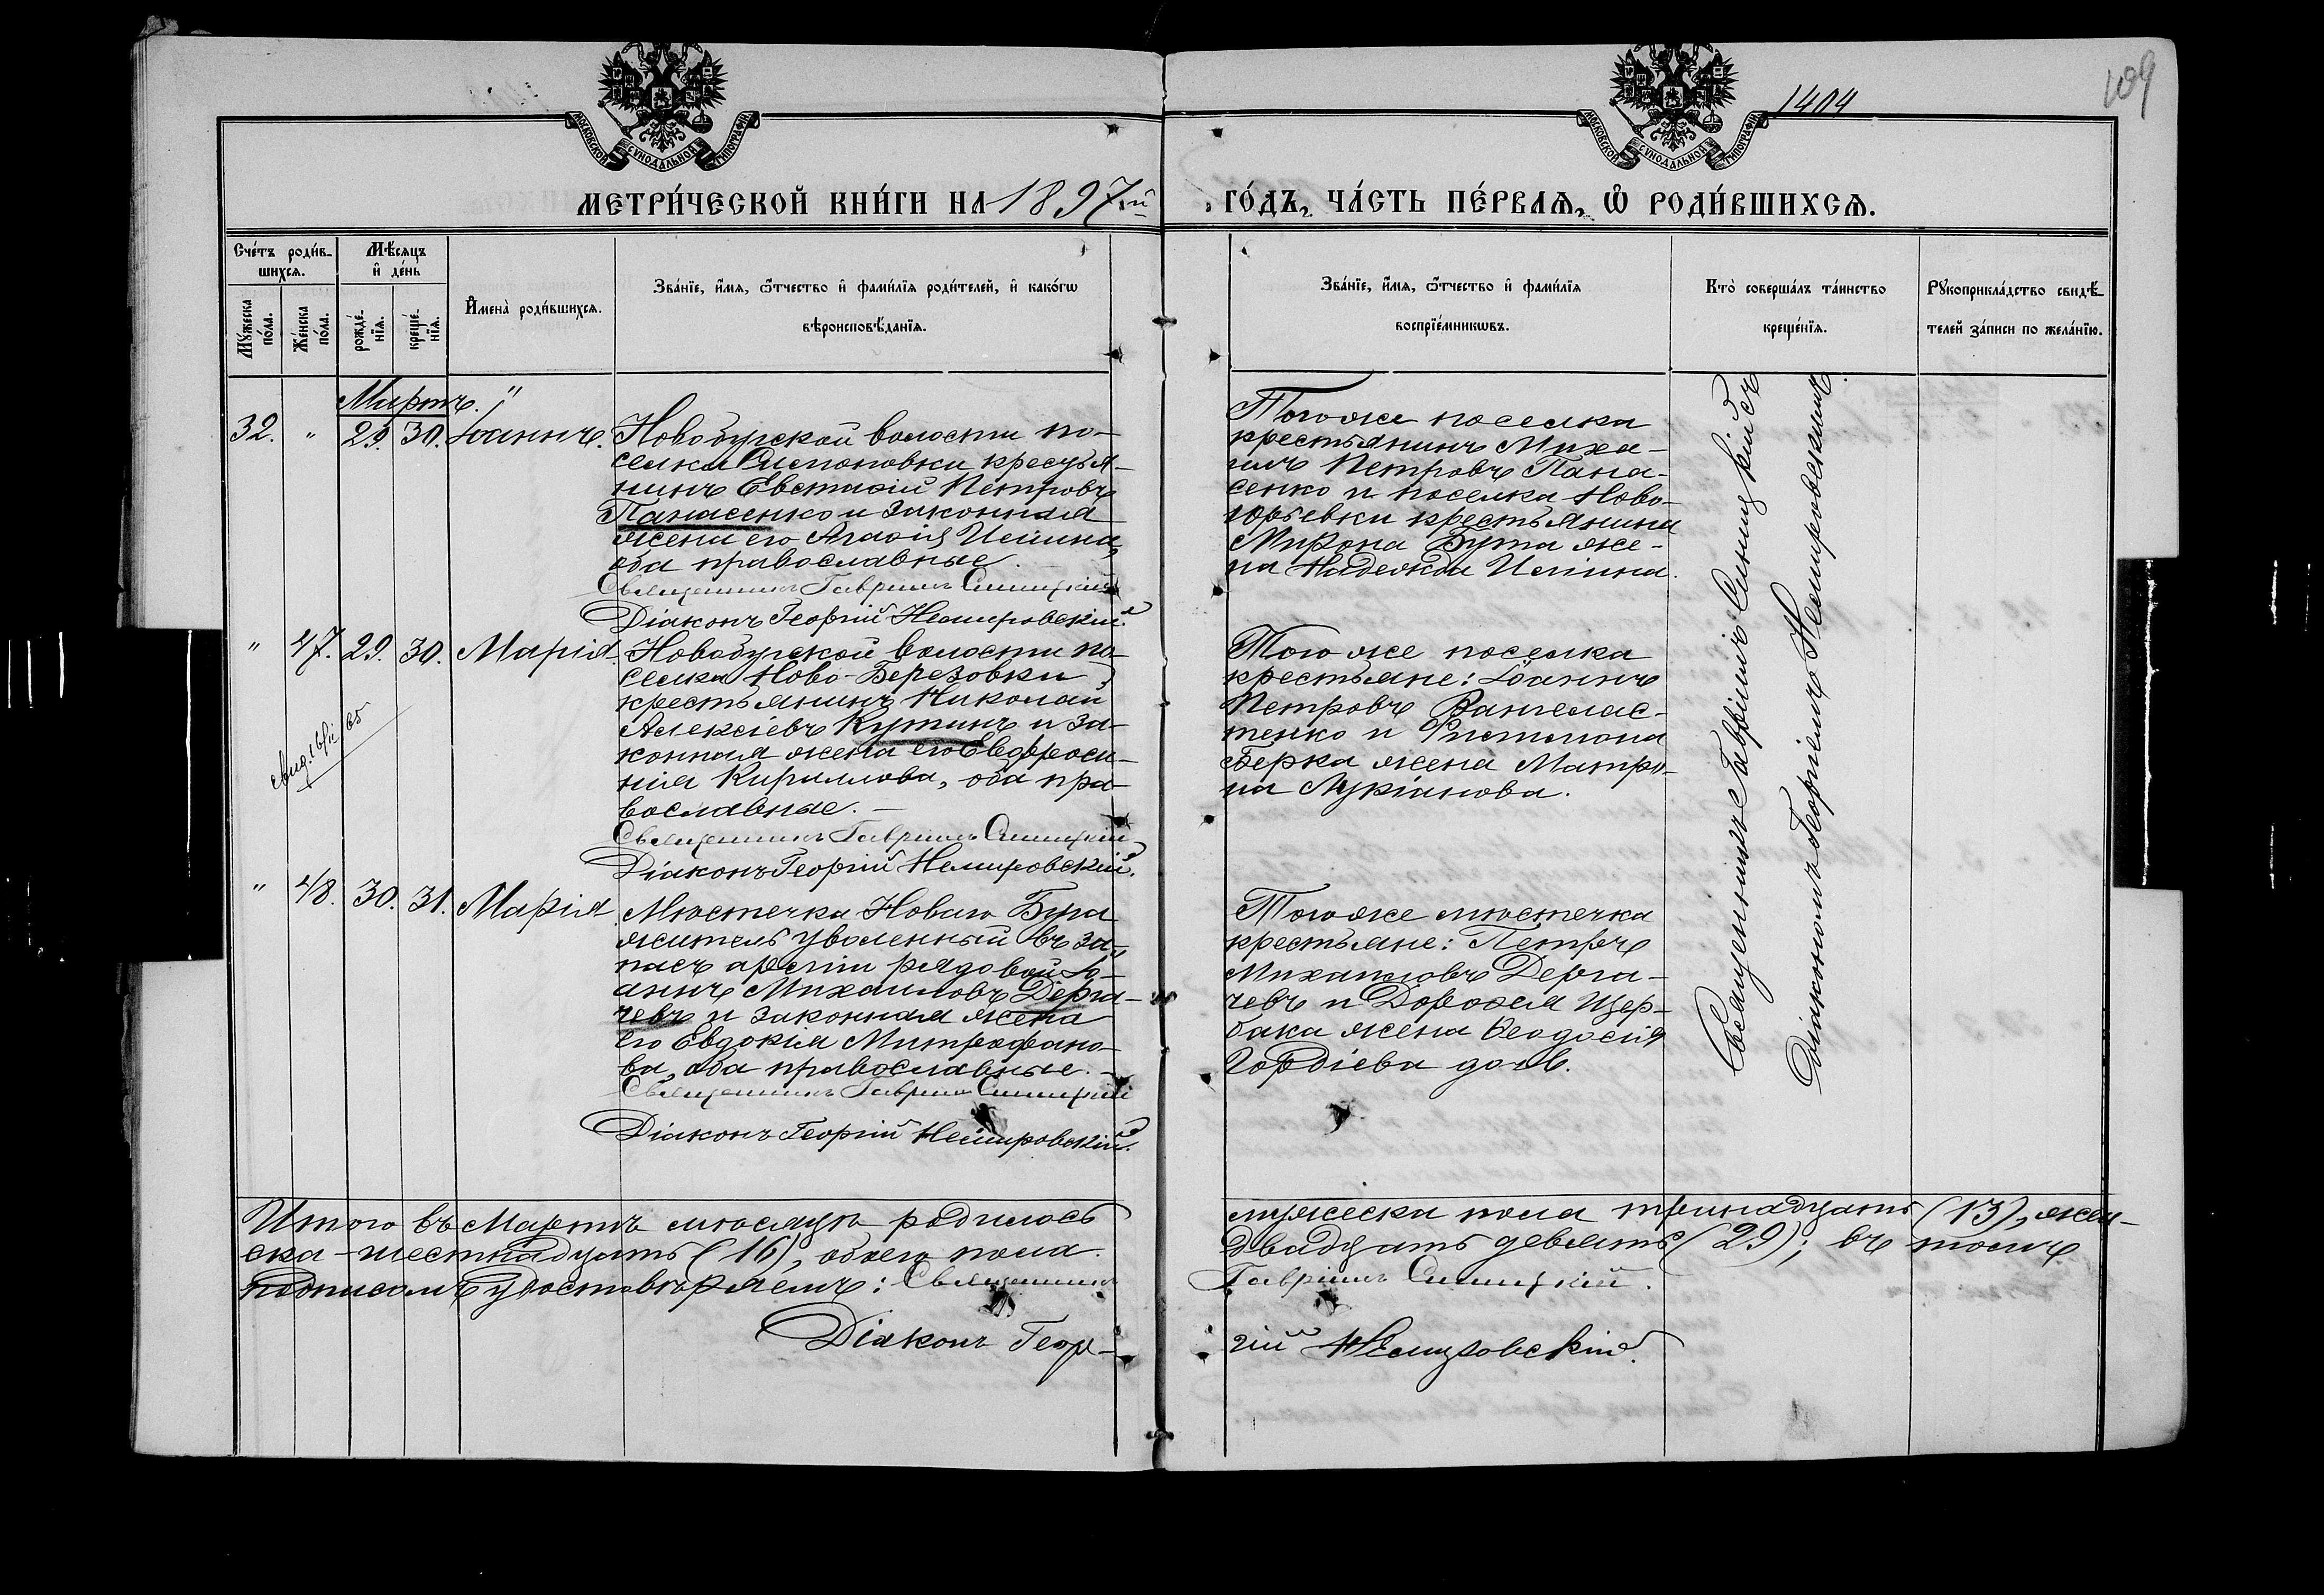 109
1404
МОСКОВСКОЙ СѴНОДАЛЬНОЙ ТИПОГРАФІИ
МОСКОВСКОЙ СѴНОДАЛЬНОЙ ТИПОГРАФІИ
МЕТРИ́ЧЕСКОЙ КНИ́ГИ НА 1897й ГО́ДЪ, ЧА́СТЬ ПЕ́РВАѦ, Ѽ РОДИ́ВШИХСѦ.
Сче́тъ роди́в-
шихсѧ.
Мꙋ́жеска по́ла.
Же́нска по́ла.
Мѣ́сѧцъ
и҆ де́нь
рожде́-
нїѧ.
креще́-
нїѧ.
И҆мена̀ роди́вшихсѧ.
Зва́нїе, и҆́мѧ, ѻ҆́тчество и҆ фами́лїѧ роди́телей, и҆ како́гѡ
вѣроисповѣ́данїѧ.
Зва́нїе, и҆́мѧ, ѻ҆́тчество и҆ фами́лїѧ
воспрїе́мникѡвъ.
Кто̀ соверша́лъ та́инство
креще́нїѧ.
Рꙋкоприкла́дство свидѣ́-
телей за́писи по жела́нїю.
Мартъ.
32. " 29. 30. Іоаннъ.
Новобугской волости по-
селка Симоновки крестья-
нинъ Евстафій Петровъ
Панасенко и законная
жена его Агафія Исаина,
оба православные.
Священникъ Гавріилъ Синицкій
Діаконъ Георгій Немировскій.
Тогоже поселка
крестьянинъ Миха-
илъ Петровъ Пана-
сенко и поселка Ново-
Юрьевки крестьянина
Мирона Бута же-
на Надежда Исаина.
" 47. 29. 30. Марія.
Новобугской волости по-
селка Ново-Березовки
крестьянинъ Николай
Алексіевъ Кутинъ и за-
конная жена его Евфроси-
нія Кириллова, оба пра-
вославные.
Священникъ Гавріилъ Синицкій
Діаконъ Георгій Немировскій.
Того же поселка
крестьяне: Іоаннъ
Петровъ Вангелас-
тенко и Филимона
Берка жена Матро-
на Лукіанова.
" 48. 30. 31. Марія
Мѣстечка Новаго Буга
житель уволенный въ за-
пасъ арміи рядовой Іо-
аннъ Михаиловъ Дерга-
чевъ и законная жена
его Евдокія Митрофано-
ва, оба православные.
Священникъ Гавріилъ Синицкій
Діаконъ Георгій Немировскій.
Тогоже мѣстечка
крестьяне: Петръ
Михаиловъ Дерга-
чевъ и Дорофея Щер-
бака жена Ѳеодосія
Гордіева
Священникъ Гавріилъ Синицкій съ
Діакономъ Георгіемъ Немировскимъ.
Итого въ Мартѣ мѣсяцѣ родилось мужеска пола тринадцать (13), жен-
ска - шестнадцать (16), обоего пола двадцать девять (29); въ томъ
подписомъ удостовѣряемъ: Священникъ Гавріилъ Синицкій.
Діаконъ Геор-
гій Немировскій.